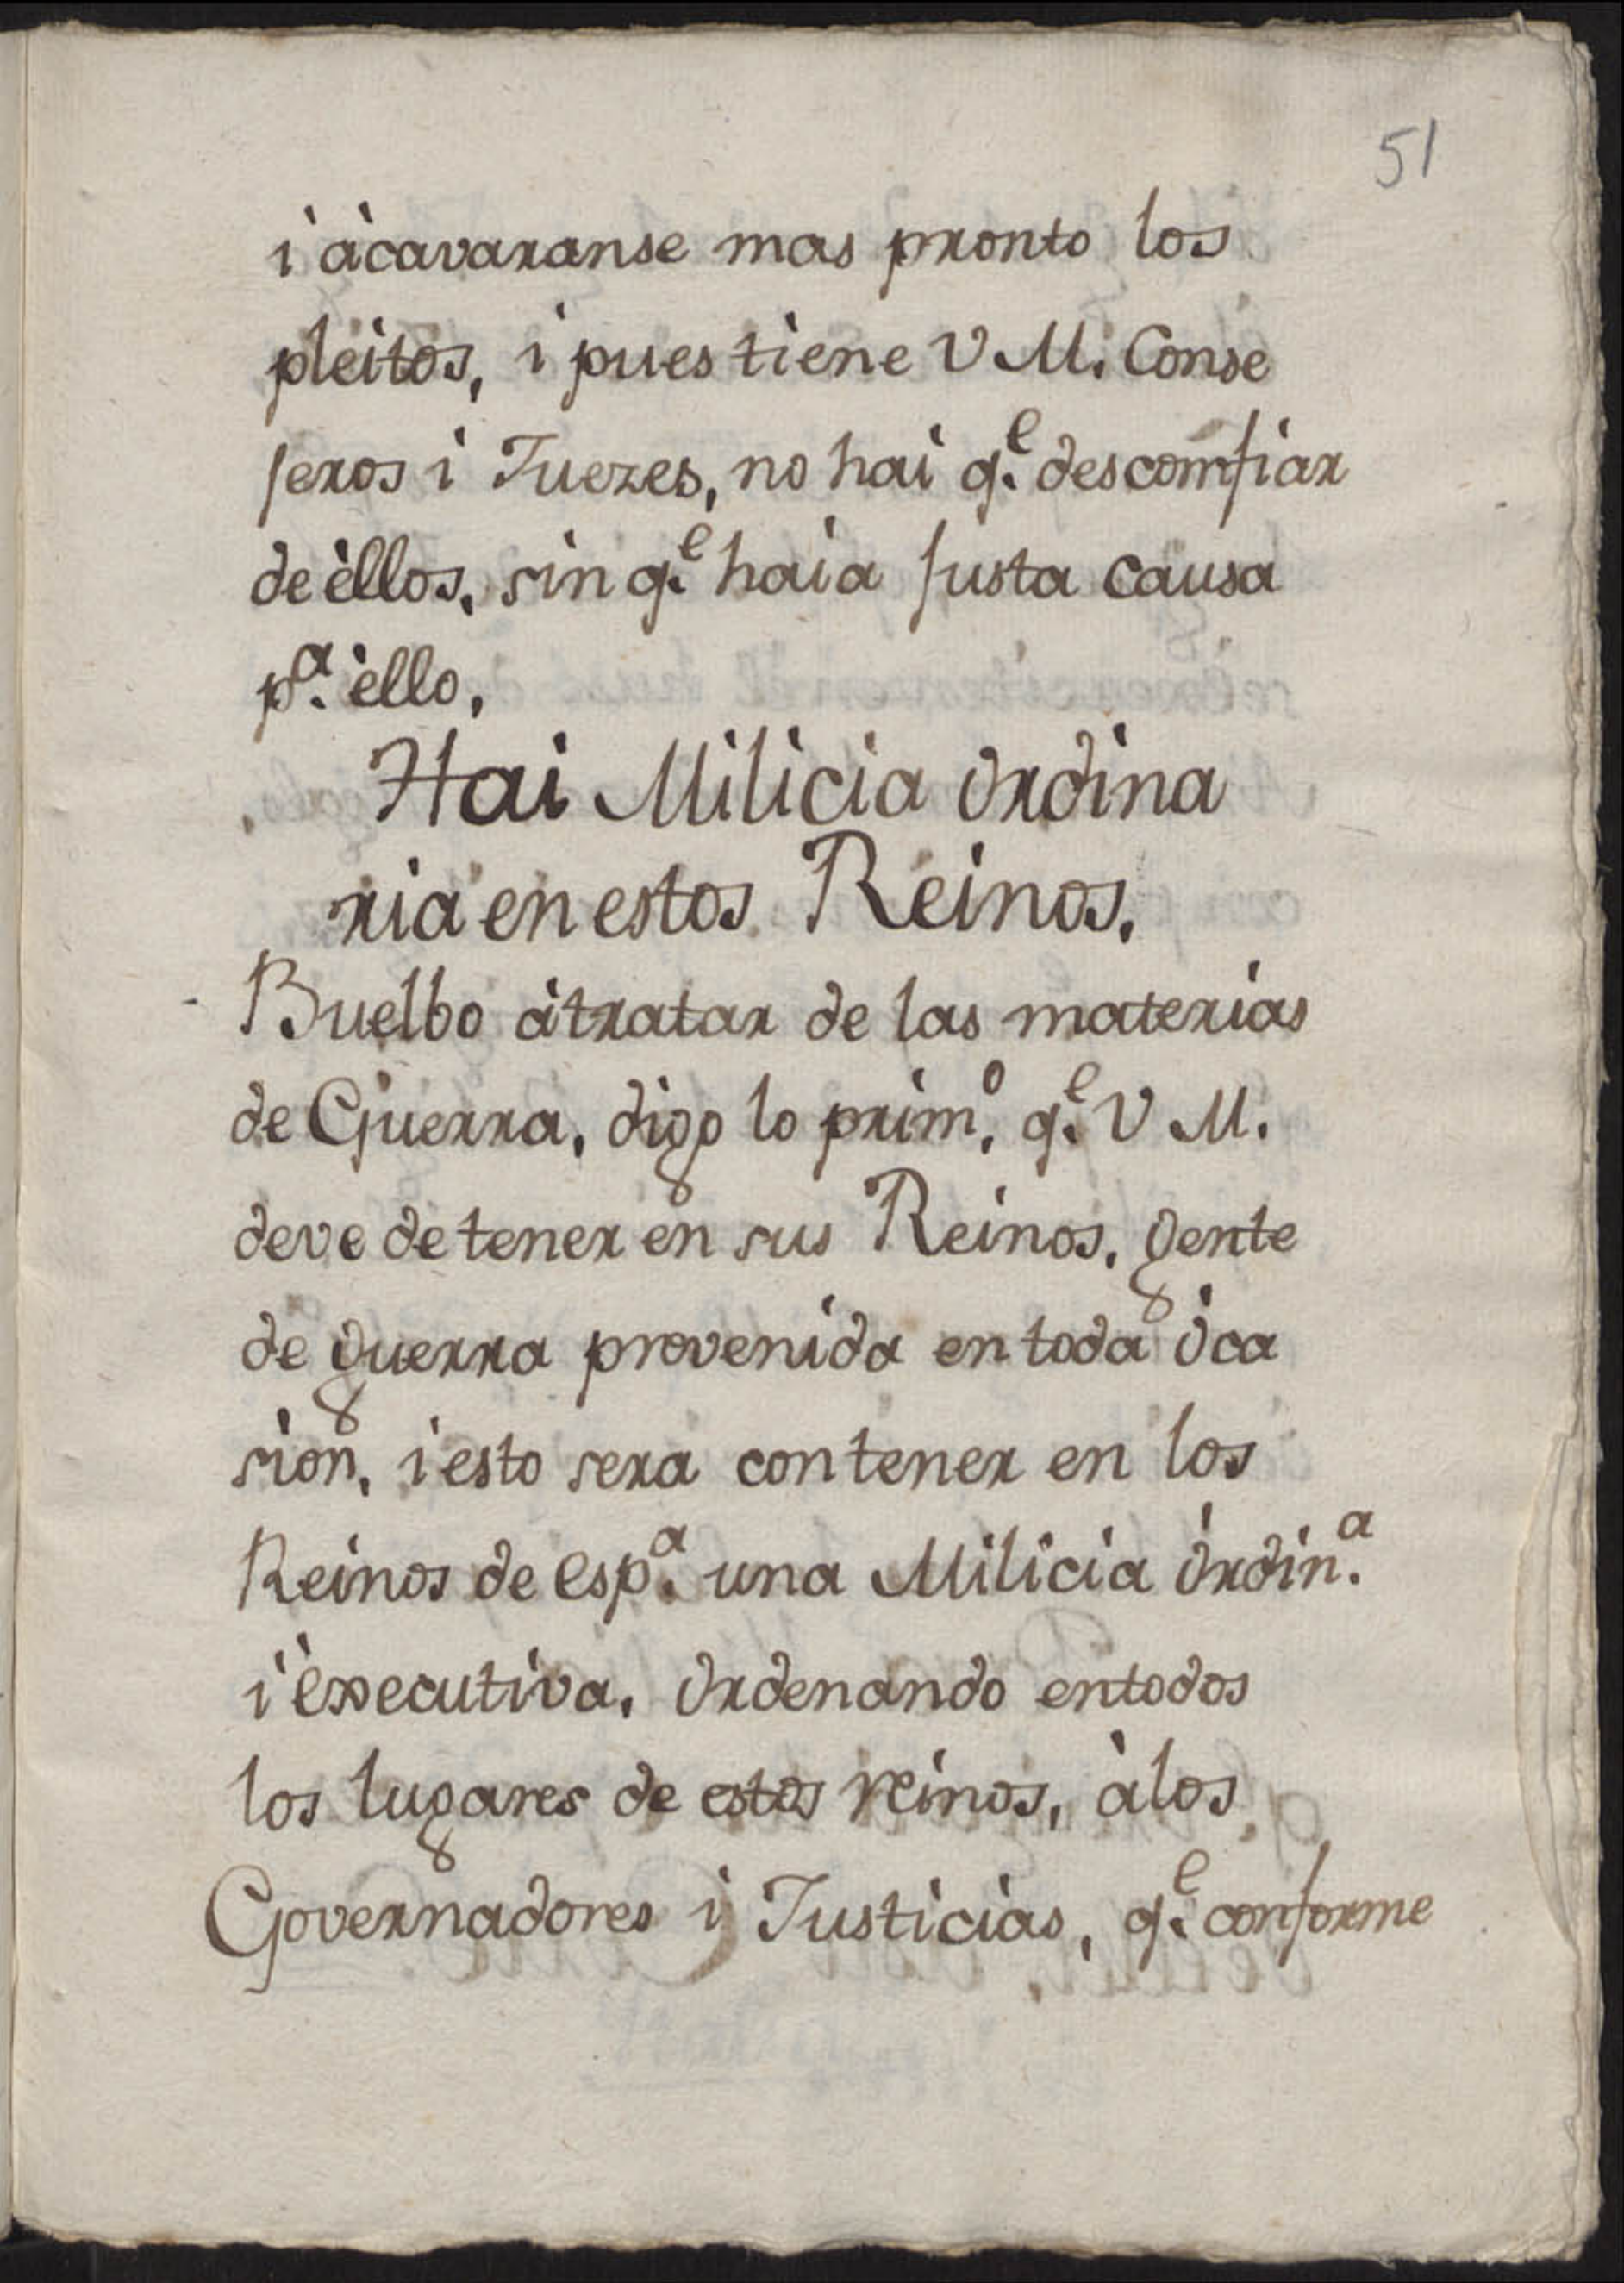 51
i àcavaranse mas pronto los
pleitos, i pues tiene V M. Conse
jeros i Juezes, no hai q.e descomfiar
de èllos, sin q.e haia justa causa
p.a èllo,
Hai Milicia Ordina
ria en estos Reinos.
Buelbo àtratar de las materias
de Guerra, digo lo prim.o q.e V M.
deve de tener en sus Reinos, gente
de guerra provenida en toda òca
sion, i esto sera con tener en los
Reinos de Esp.a una Milicia òrdin.a
i èxecutiva, Ordenando entodos
los lugares de estos reinos, àlos
Governadores i Justicias, q.e conforme